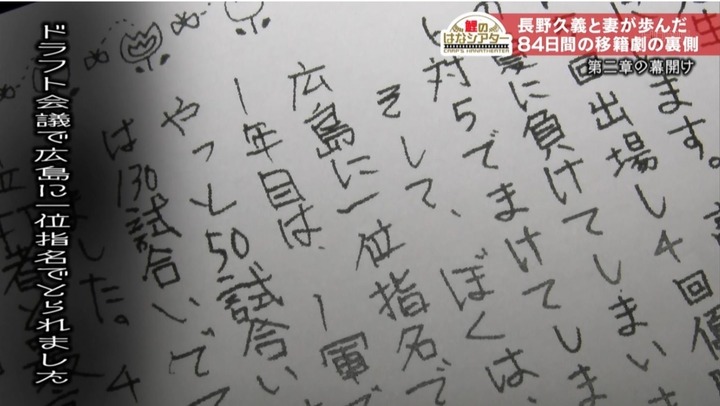 鯉の
はなシアター
CARP'S HANATHEATER
長野久義と妻が歩んだ
84日間の移籍劇の裏側
第二章の幕開け
ます。
回出場し4回優
に負けてしまいま
対5でまけてしま
そして、ぼくは、
広島に一位指名で
1年目は、1軍で
やっと50試合い
は130試合いでて
した。4
ドラフト会議で広島に一位指名でとられました